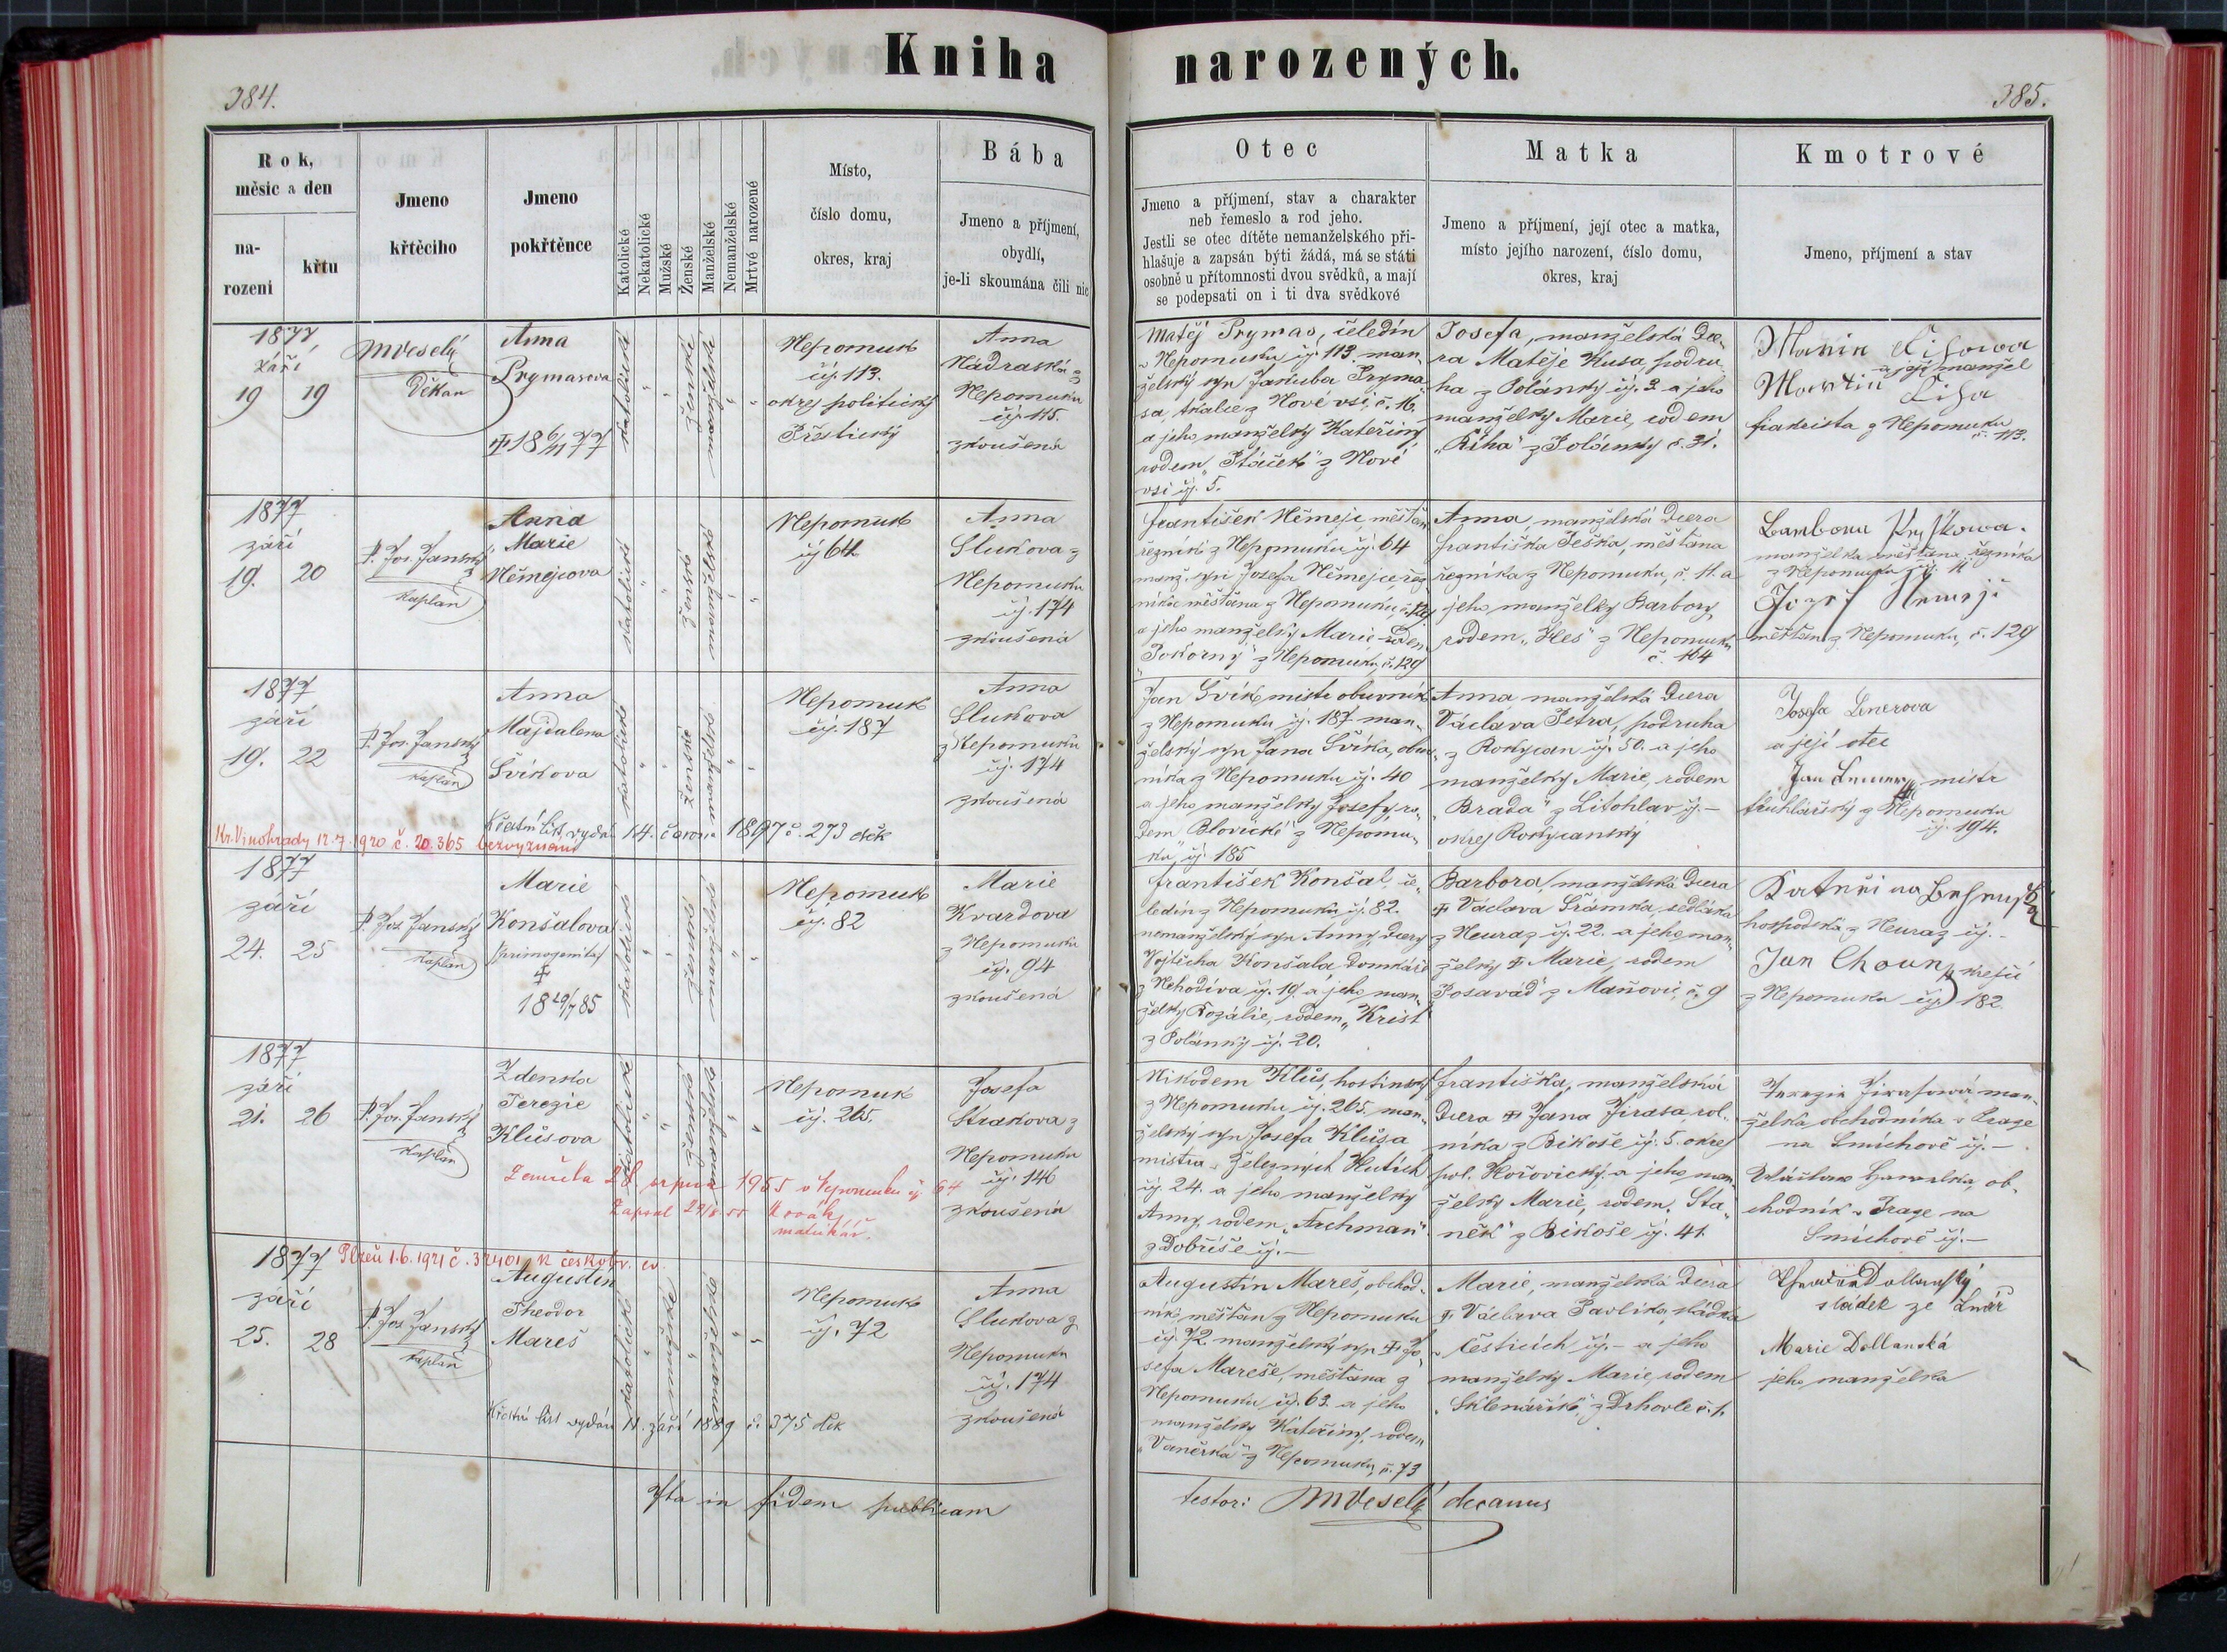 Kniha narozených.
384.
385.
Rok,
měsic a den
na-
rozeni
křtu
Jmeno
křtěciho
Jmeno
pokřtěnce
Katolické
Nekatolické
Mužské
Ženské
Manželské
Nemanželské
Mrtvé narozené
Místo,
číslo domu,
okres, kraj
Bába
Jmeno a příjmení,
obydlí,
je-li skoumána čili nic
Otec
Jmeno a příjmení, stav a charakter
neb řemeslo a rod jeho.
Jestli se otec dítěte nemanželského při-
hlašuje a zapsán býti žádá, má se státi
osobně u přítomnosti dvou svědků, a mají
se podepsati on i ti dva svědkové
Matka
Jmeno a příjmení, její otec a matka,
místo jejího narození, číslo domu,
okres, kraj
Kmotrové
Jmeno, příjmení a stav
1877
září
19 19
MVeselý
Děkan
Anna
Prymasova
18 6/11 77
katolické
ženské
manželské
Nepomuk
čj. 113.
okres politický
Přeštický
Anna
Nádraská z
Nepomuku
čj. 115.
zkoušená
Matěj Prymas, čeledín
v Nepomuku čj. 113. man-
želský syn Jakuba Pryma-
sa, tkalce z Nové vsi, č. 16.
a jeho manželky Kateřiny,
rodem "Ptáček" z Nové
vsi čj. 5.
Josefa, manželská dce-
ra Matěje Kusa, podru-
ha z Polánky čj. 3. a jeho
manželky Marie, rodem
"Říha" z Polánky č. 31.
a její manžel
Martin
fiakrista z Nepomuku
č. 113.
1877
září
19. 20
P. Jos. Janský
kaplan
Anna
Marie
Němejcova
katolické
ženské
Nepomuk
čj 64
Anna
Slukova z
Nepomuku
čj. 174
zkoušená
František Němejc, měšťan
řezník z Nepomuku čj. 64
manž. syn Josefa Němejce, řez-
níka měšťana z Nepomuku, č. 129
a jeho manželky Marie rodem
"Pokorný" z Nepomuku, č. 129
Anna, manželská dcera
Františka Peška, měšťana
řezníka z Nepomuku, č. 11. a
jeho manželky Barbory,
rodem "Kleš" z Nepomuku
č. 164
manželka měšťana řezníka
z Nepomuku čj. 11
Jozef Nemejc
měšťan z Nepomuku, č. 129
1877
září
19. 22
P. Jos. Janský
kaplan
Anna
Majdalena
Švíkova
katolické
ženské
Nepomuk
čj. 187
Anna
Slukova
z Nepomuku
čj. 174
zkoušená
Křestní list vydán 14. února 1897 č. 273 děk
Kr. Vinohrady 12.7.1920 č. 20.365 bezvyznání
Jan Švík mistr obuvník
z Nepomuku čj. 187 man-
želský syn Jana Švíka, obuv-
níka z Nepomuku čj. 40
a jeho manželky Josefy, ro-
dem "Blovické" z Nepomu-
ku, čj. 185
Anna manželská dcera
Václava Petra, podruha
z Rokycan čj. 50. a jeho
manželky Marie, rodem
"Brada" z Litohlav čj. -
okres Rokycanský
Josefa Lenerova
a její otec
mistr
truhlářský z Nepomuku
čj. 194.
1877
září
24. 25
P. Jos Janský
kaplan
Marie
Konšalova
(primogenita)
18 29/7 85
katolické
ženské
manželské
Nepomuk
čj. 82
Marie
Kvardova
z Nepomuku
čj. 94
zkoušená
František Konšal, če-
ledín z Nepomuku čj. 82.
nemanželský syn Anny, dcery
Vojtěcha Konšala, domkáře
z Nehodiva čj. 19. a jeho man-
želky Rozálie, rodem "Krist"
z Polánky čj. 20.
Barbora, manželská dcera
Václava Šrámka, sedláka
z Neuraz čj. 22. a jeho man-
želky Marie, rodem
"Posavád" z Maňovic, č. 9
hospodská z Neuraz čj. -
Jan Choun krejčí
z Nepomuku čj. 182
1877
září
21. 26
P. Jos. Janský
kaplan
Zdenka
Terezie
Klůsova
katolické
ženské
manželské
Nepomuk
čj. 265.
Josefa
Strakova z
Nepomuku
čj. 146
zkoušená
Zemřela 28. srpna 1955 v Nepomuku čj. 64
Zapsal 29/8 55
matrikář.
Nikodem Klůs, hostinský
z Nepomuku čj. 265. man-
želský syn Josefa Klůsa
mistra v železných Hutích
čj. 24. a jeho manželky
Anny, rodem "Archman"
z Dobříše čj. -
Františka, manželská
dcera Jana Jirasa, rol-
níka z Bikoše čj. 5. okres
pol. Hořovický, a jeho man-
želky Marie, rodem "Sta-
něk" z Bikoše čj. 41.
man-
želka obchodníka v Praze
na Smíchově čj. -
ob-
chodník v Praze na
Smíchově čj. -
Plzeň 1.6.1921 č. 32401, k českobr. ev.
1877
září
25. 28
P. Jos Janský
kaplan
Augustin
Theodor
Mareš
katolické
mužské
manželské
Nepomuk
čj. 72
Anna
Slukova z
Nepomuku
čj. 174
zkoušená
Křestní list vydán 11. září 1889 č. 375 děk
Augustin Mareš, obchod-
ník, měšťan z Nepomuku
čj. 72. manželský syn Jo-
sefa Mareše, měšťana z
Nepomuku čj. 63. a jeho
manželky Kateřiny, rodem
"Vaněrka" z Nepomuku, č. 73
Marie, manželská dcera
Václava Pavlika, sládka
v Čestících čj. - a jeho
manželky Marie, rodem
"Sklenářík" z Drhovle č. 1.
sládek ze Lnář
Marie Dollanská
jeho manželka
Ita in fidem publicam
testor: MVeselý decanus